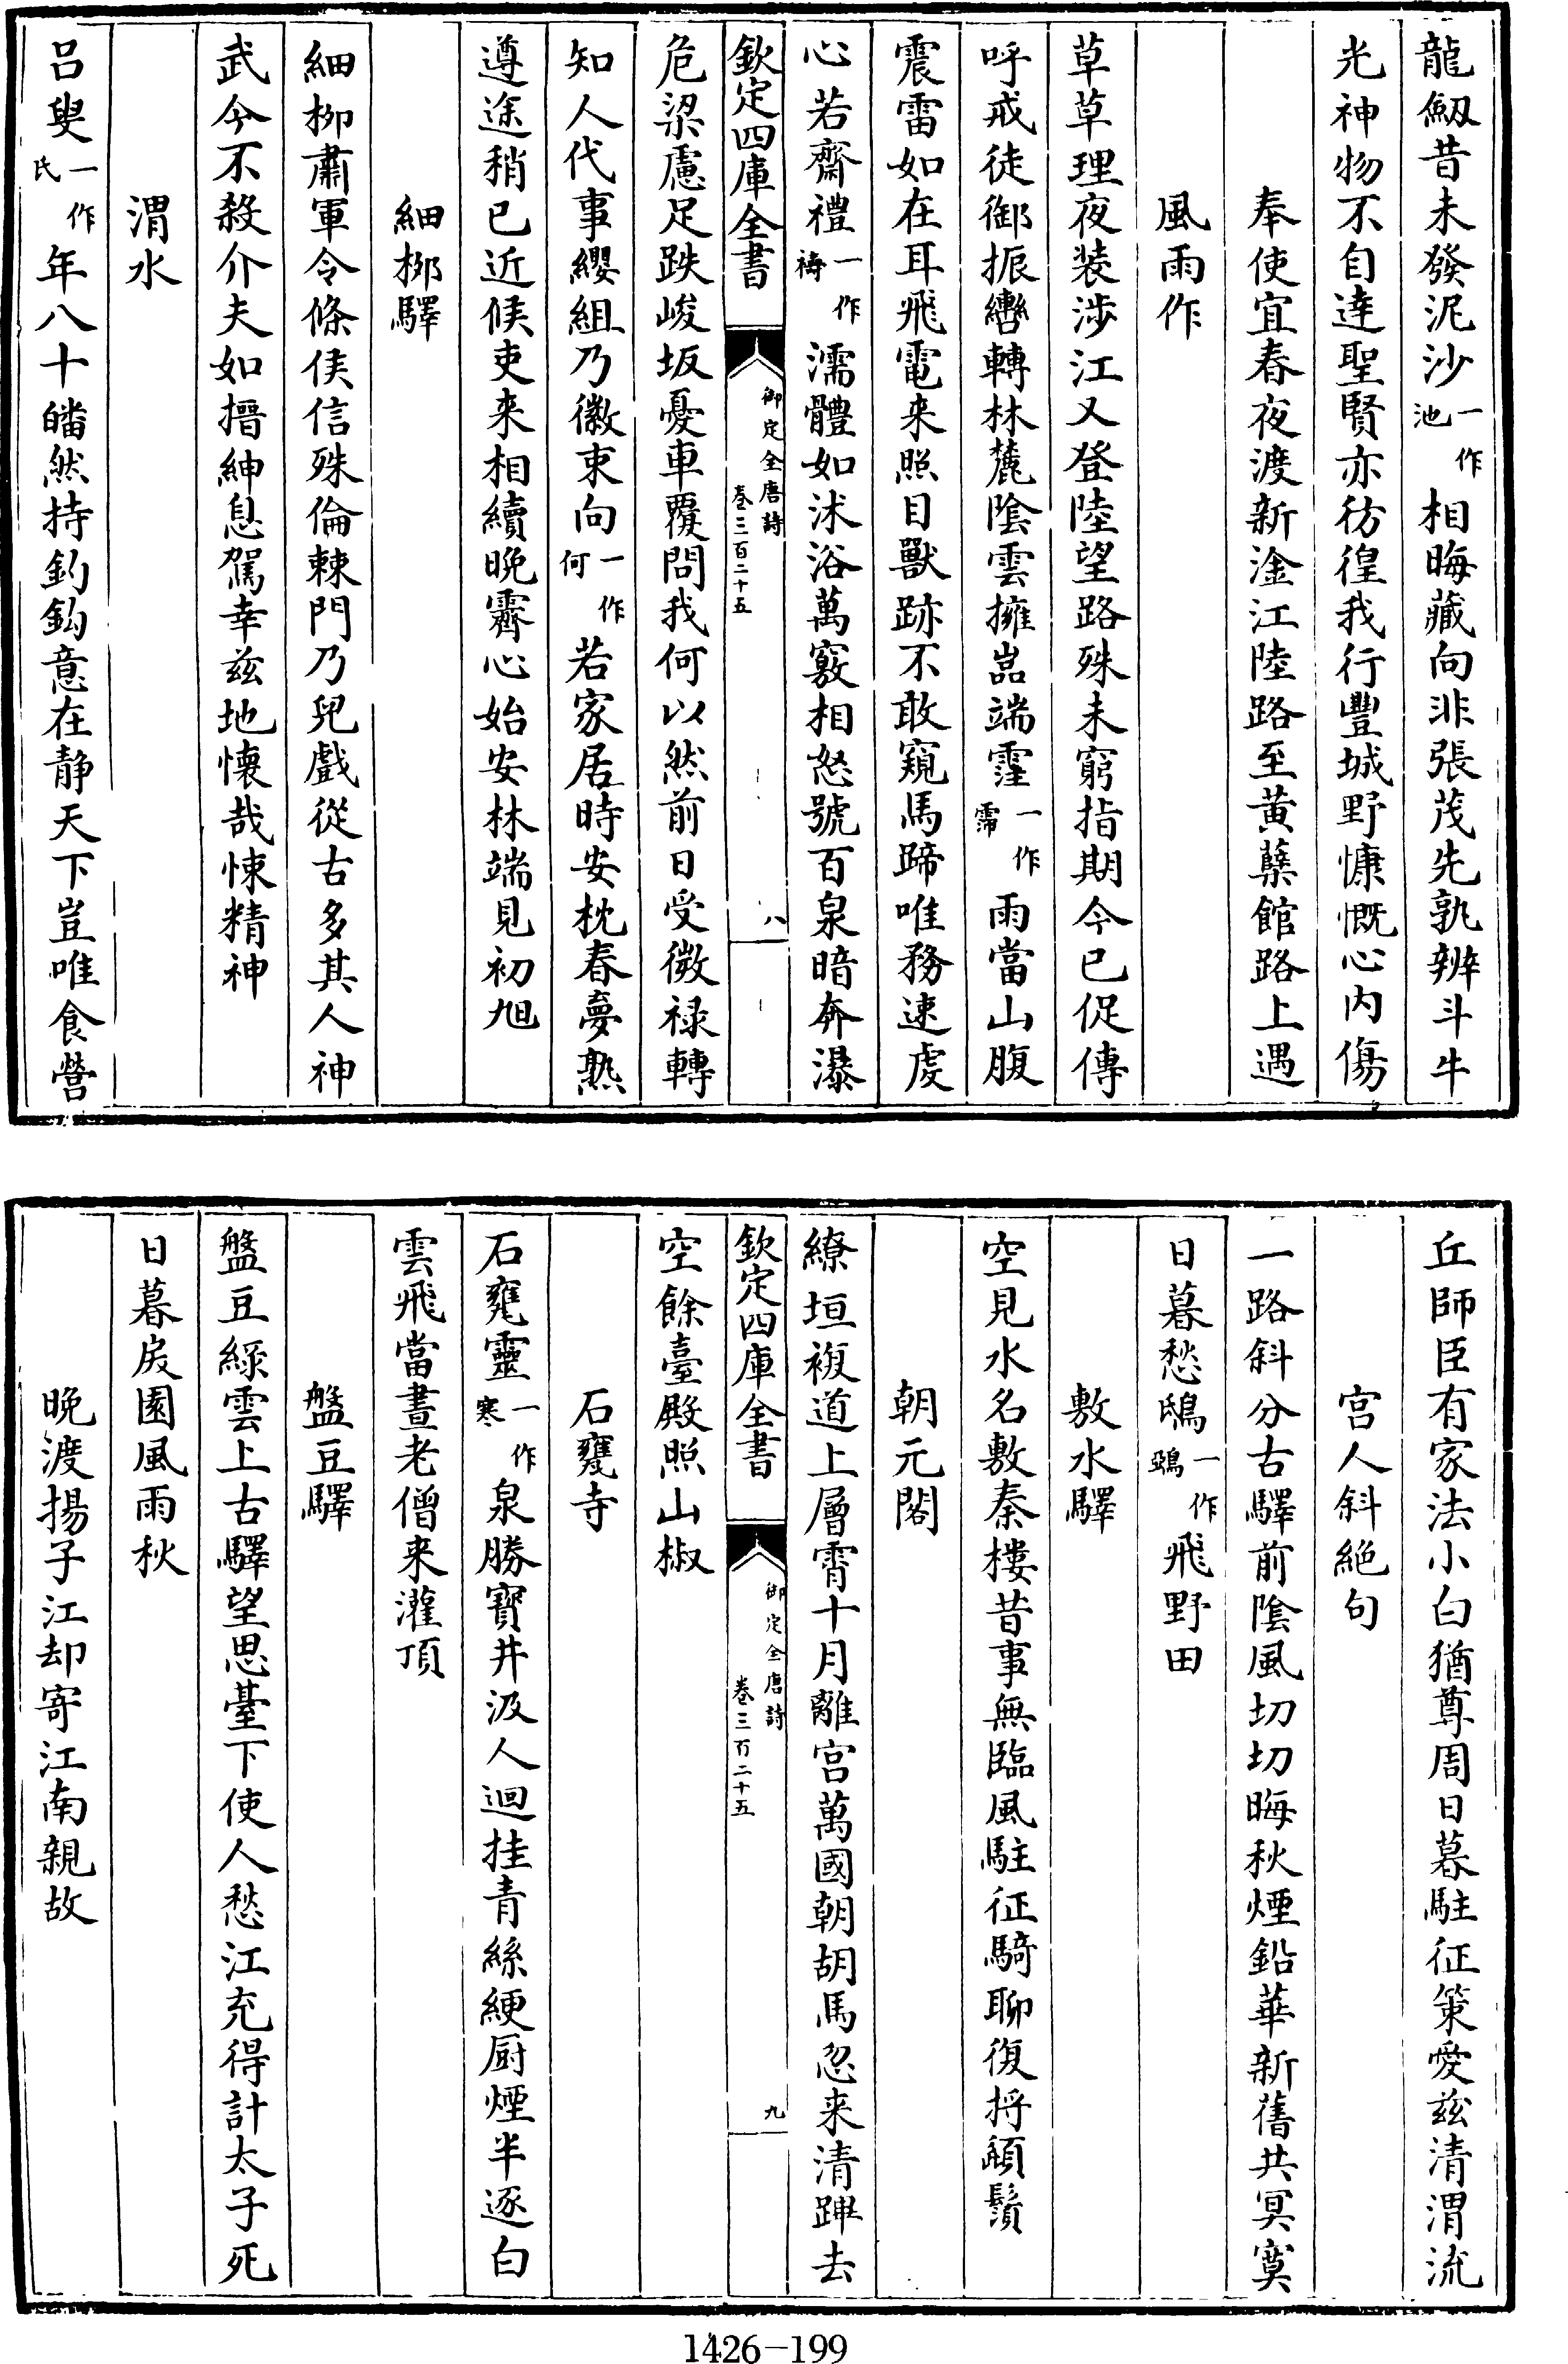 龍劒昔未發泥沙一作池相晦藏向非張茂先孰辨斗牛
光神物不自達聖賢亦彷徨我行豐城野慷慨心内傷
奉使宜春夜渡新淦江陸路至黄蘖館路上遇
風雨作
草草理夜装涉江又登陸望路殊未窮指期今已促傳
呼戒徒御振轡轉林麓陰雲擁嵓端霪一作霈雨當山腹
震雷如在耳飛電来照目獸跡不敢窺馬蹄唯務速虔
心若齋禱一作禮濡體如沐浴萬竅相怒號百泉暗奔瀑
欽定四庫全書
御定全唐詩
卷三百二十五
八
危梁慮足跌峻坂憂車覆問我何以然前日受微禄轉
知人代事纓組乃徽束向一作何若家居時安枕春夢熟
遵途稍已近候吏来相續晩霽心始安林端見初旭
細栁驛
細栁肅軍令條侯信殊倫棘門乃兒戲從古多其人神
武今不殺介夫如搢紳息駕幸兹地懷哉悚精神
渭水
吕叟一作氏年八十皤然持釣鈎意在静天下豈唯食營
丘師臣有家法小白猶尊周日暮駐征策愛兹清渭流
宫人斜絶句
一路斜分古驛前陰風切切晦秋煙鉛華新舊共冥寞
日暮愁鴟一作鵶飛野田
敷水驛
空見水名敷秦樓昔事無臨風駐征騎聊復捋髭鬚
朝元閣
繚垣複道上層霄十月離宫萬國朝胡馬忽来清蹕去
欽定四庫全書
御定全唐詩
卷三百二十五
九
空餘臺殿照山椒
石甕寺
石甕靈一作寒泉勝寳井汲人迴挂青絲綆厨煙半逐白
雲飛當晝老僧来灌頂
盤豆驛
盤豆緑雲上古驛望思臺下使人愁江充得計太子死
日暮戾園風雨秋
晩渡揚子江却寄江南親故
1426-199